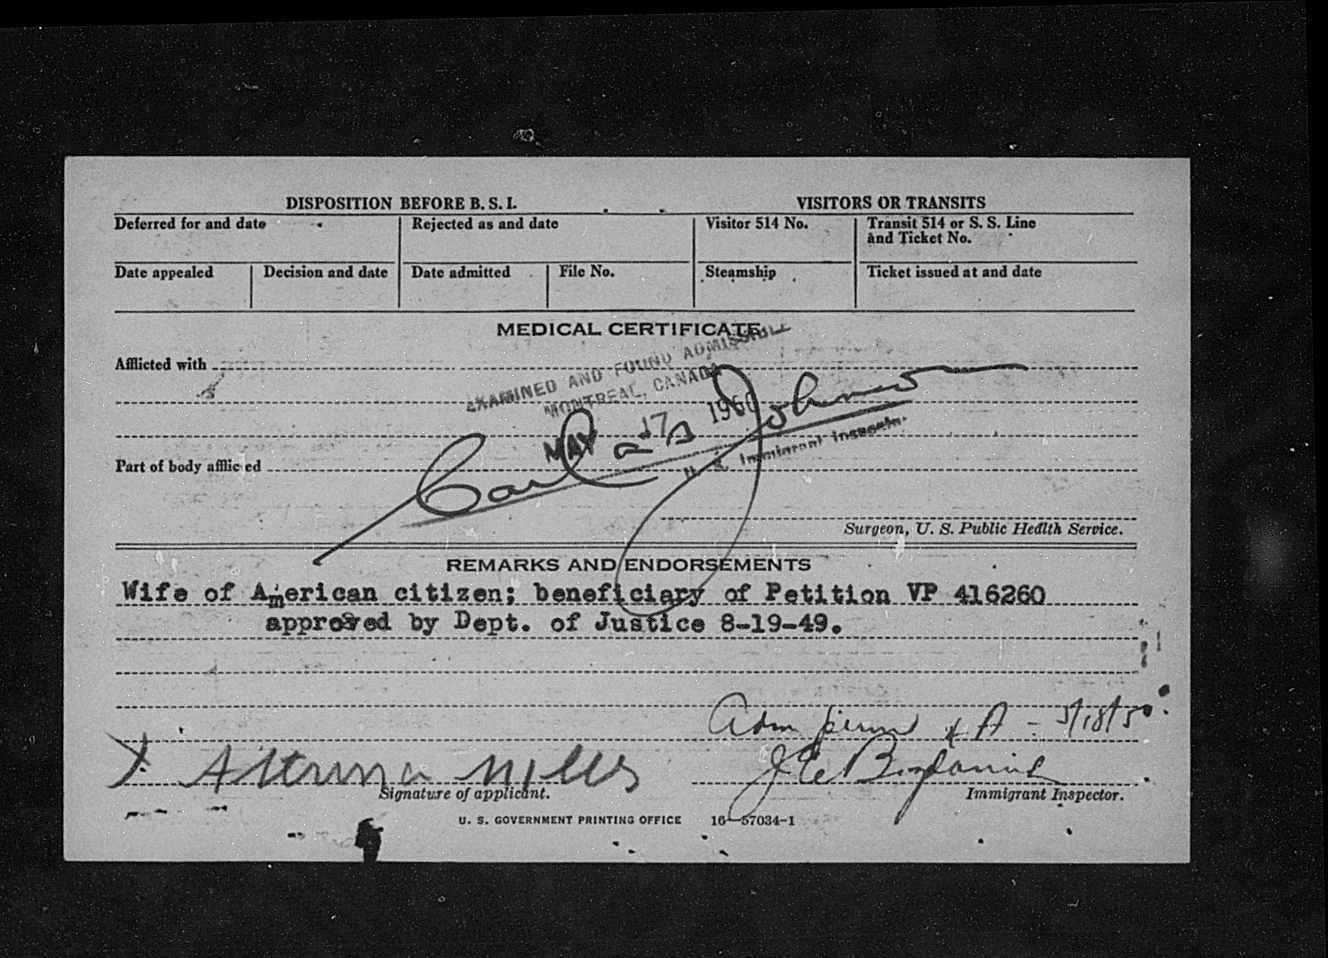 DISPOSITION BEFORE B. S. I.
VISITORS OR TRANSITS
Deferred for and date
Rejected as and date
Visitor 514 No.
Transit 514 or S. S. Line
and Ticket No.
Date appealed
Decision and date
Date admitted
File No.
Steamship
Ticket issued at and date
MEDICAL CERTIFICATE
Afflicted with
EXAMINED AND FOUND ADMISSIBLE
MONTREAL, CANADA
MAY 17 1950
Johnson
U. S. Immigrant Inspector.
Part of body afflicted
Surgeon, U. S. Public Health Service.
REMARKS AND ENDORSEMENTS
Wife of American citizen; beneficiary of Petition VP 416260
approved by Dept. of Justice 8-19-49.
Adm perm A - 5/18/50
X Mills
J E
Signature of applicant.
Immigrant Inspector.
U. S. GOVERNMENT PRINTING OFFICE 16—57034-1